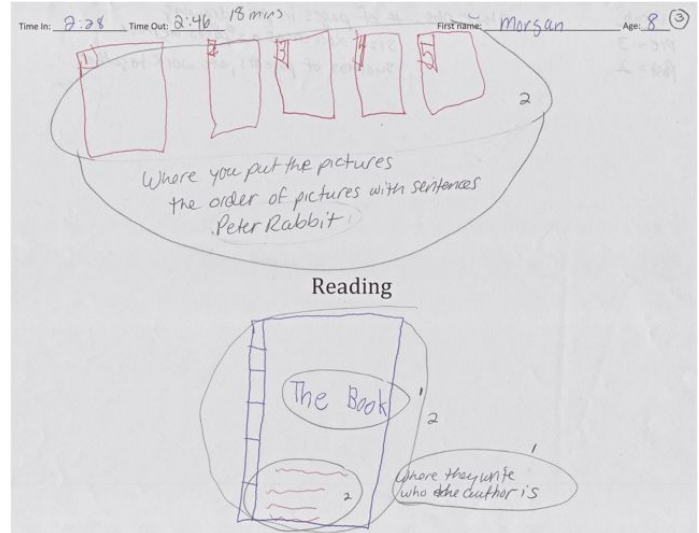 Time In: 2:28 Time Out: 2:46 18 mins First name: Morgan Age: 8 3
1 2 3 4 5
2
Where you put the pictures
the order of pictures with sentences
Peter Rabbit 1
Reading
The Book 1
2
where they write 1
who the author is
2